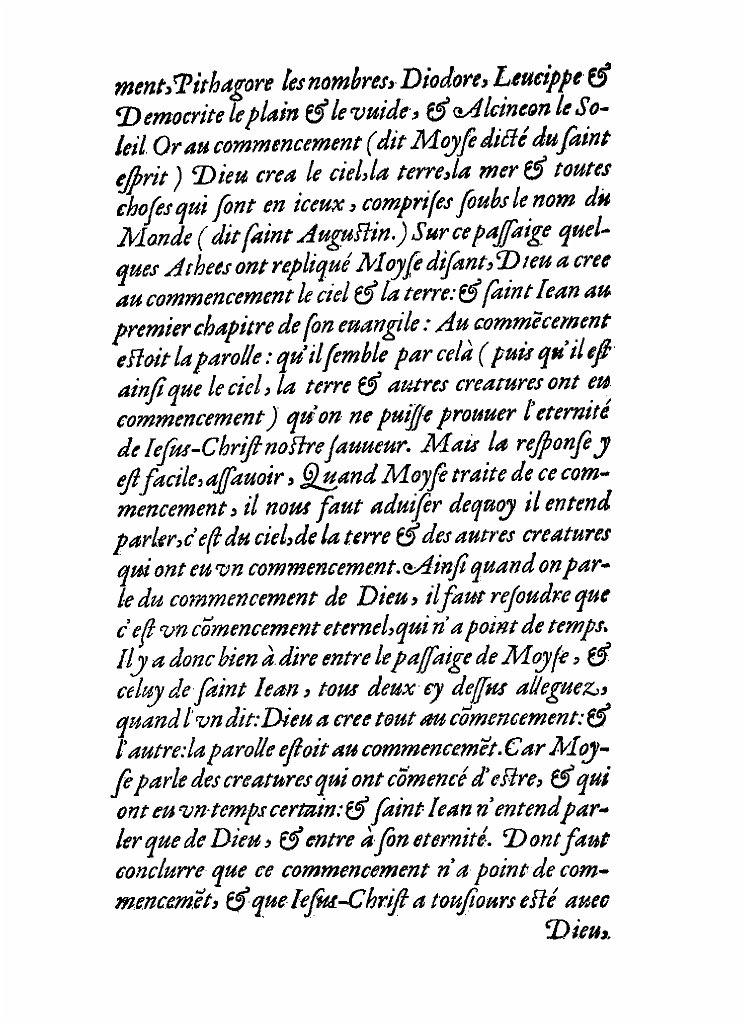 ment, Pithagore les nombres, Diodore, Leucippe &
Democrite le plain & le vuide, & Alcineon le So-
leil. Or au commencement (dit Moyſe dicté du ſaint
eſprit) Dieu crea le ciel, la terre, la mer & toutes
choſes qui ſont en iceux, compriſes ſoubs le nom du
Monde (dit ſaint Auguſtin.) Sur ce paſſaige quel-
ques Athees ont repliqué Moyſe diſant, Dieu a cree
au commencement le ciel & la terre: & ſaint Iean au
premier chapitre de ſon euangile: Au commēcement
eſtoit la parolle: qu'il ſemble par celà (puis qu'il eſt
ainſi que le ciel, la terre & autres creatures ont eu
commencement) qu'on ne puiſſe prouuer l'eternité
de Ieſus-Chriſt noſtre ſauueur. Mais la reſponſe y
eſt facile, aſſauoir, Quand Moyſe traite de ce com-
mencement, il nous faut aduiſer dequoy il entend
parler, c'eſt du ciel, de la terre & des autres creatures
qui ont eu vn commencement. Ainſi quand on par-
le du commencement de Dieu, il faut reſoudre que
c'eſt vn cōmencement eternel, qui n'a point de temps.
Il y a donc bien à dire entre le paſſaige de Moyſe, &
celuy de ſaint Iean, tous deux cy deſſus alleguez,
quand l'vn dit: Dieu a cree tout au cōmencement: &
l'autre: la parolle eſtoit au commencemēt. Car Moy-
ſe parle des creatures qui ont cōmencé d'eſtre, & qui
ont eu vn temps certain: & ſaint Iean n'entend par-
ler que de Dieu, & entre à ſon eternité. Dont faut
conclurre que ce commencement n'a point de com-
mencemēt, & que Ieſus-Chriſt a touſiours eſté auec
Dieu,